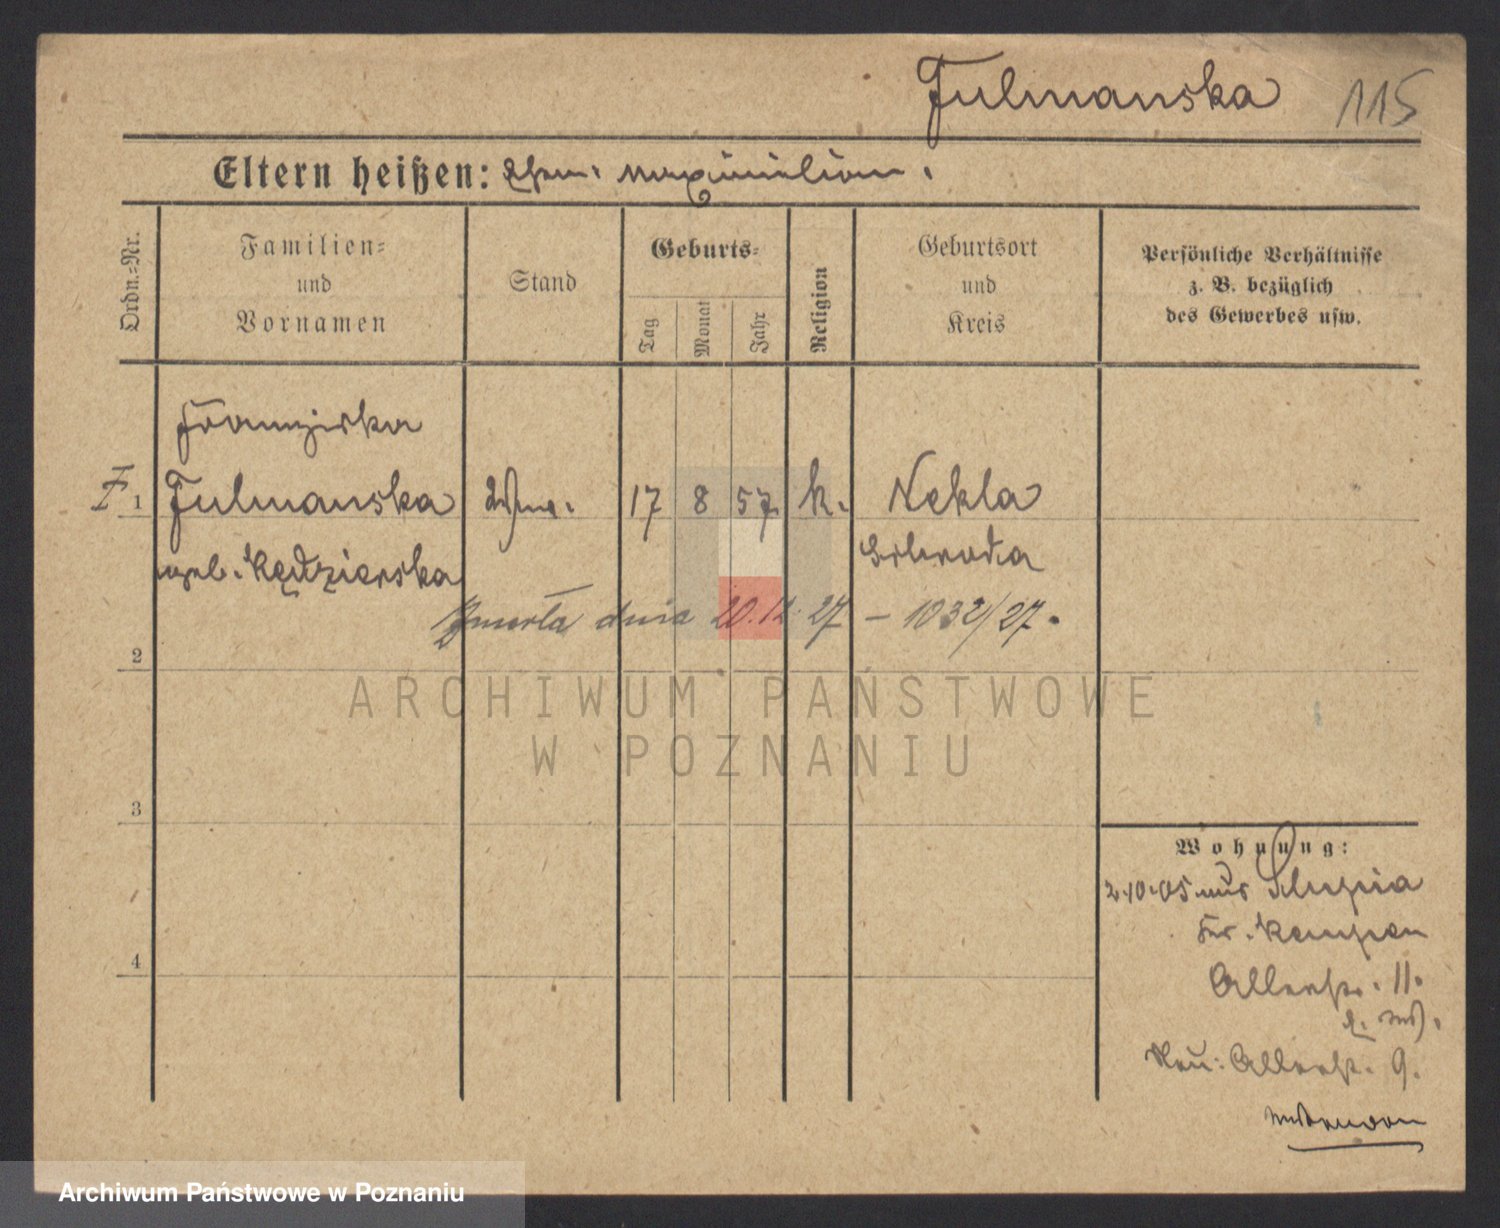 Fulmanska 115
Eltern heißen: Ehem: Maximilian.
Ordn.=Nr.
Familien=
und
Vornamen
Stand
Geburts=
Tag
Monat
Jahr
Religion
Geburtsort
und
Kreis
Persönliche Verhältnisse
z. B. bezüglich
des Gewerbes usw.
Franziska
1 Fulmanska Wwe. 17 8 57. k. Nekla
geb. Kędzierska Schroda
Zmarła dnia 20.12.27 – 1032/27.
2
ARCHIWUM PAŃSTWOWE
W POZNANIU
3
Wohnung:
2.10.05 aus Slupia
Kr. Kempen
Allerstr. 11.
4
Neu: Allerstr. 9.
Archiwum Państwowe w Poznaniu